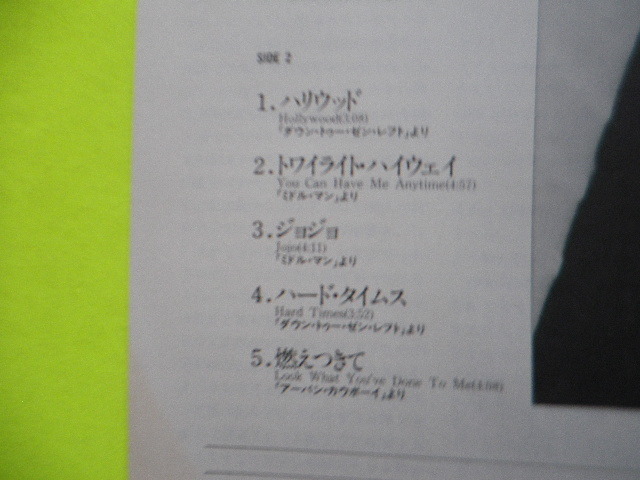 SIDE 2
1. ハリウッド
Hollywood(3:08)
「ダウン・トゥー・ゼン・レフト」より
2. トワイライト・ハイウェイ
You Can Have Me Anytime(4:57)
「ミドル・マン」より
3. ジョジョ
Jojo(4:11)
「ミドル・マン」より
4. ハード・タイムス
Hard Times(3:52)
「ダウン・トゥー・ゼン・レフト」より
5. 燃えつきて
Look What You've Done To Me(4:08)
「アーバン・カウボーイ」より